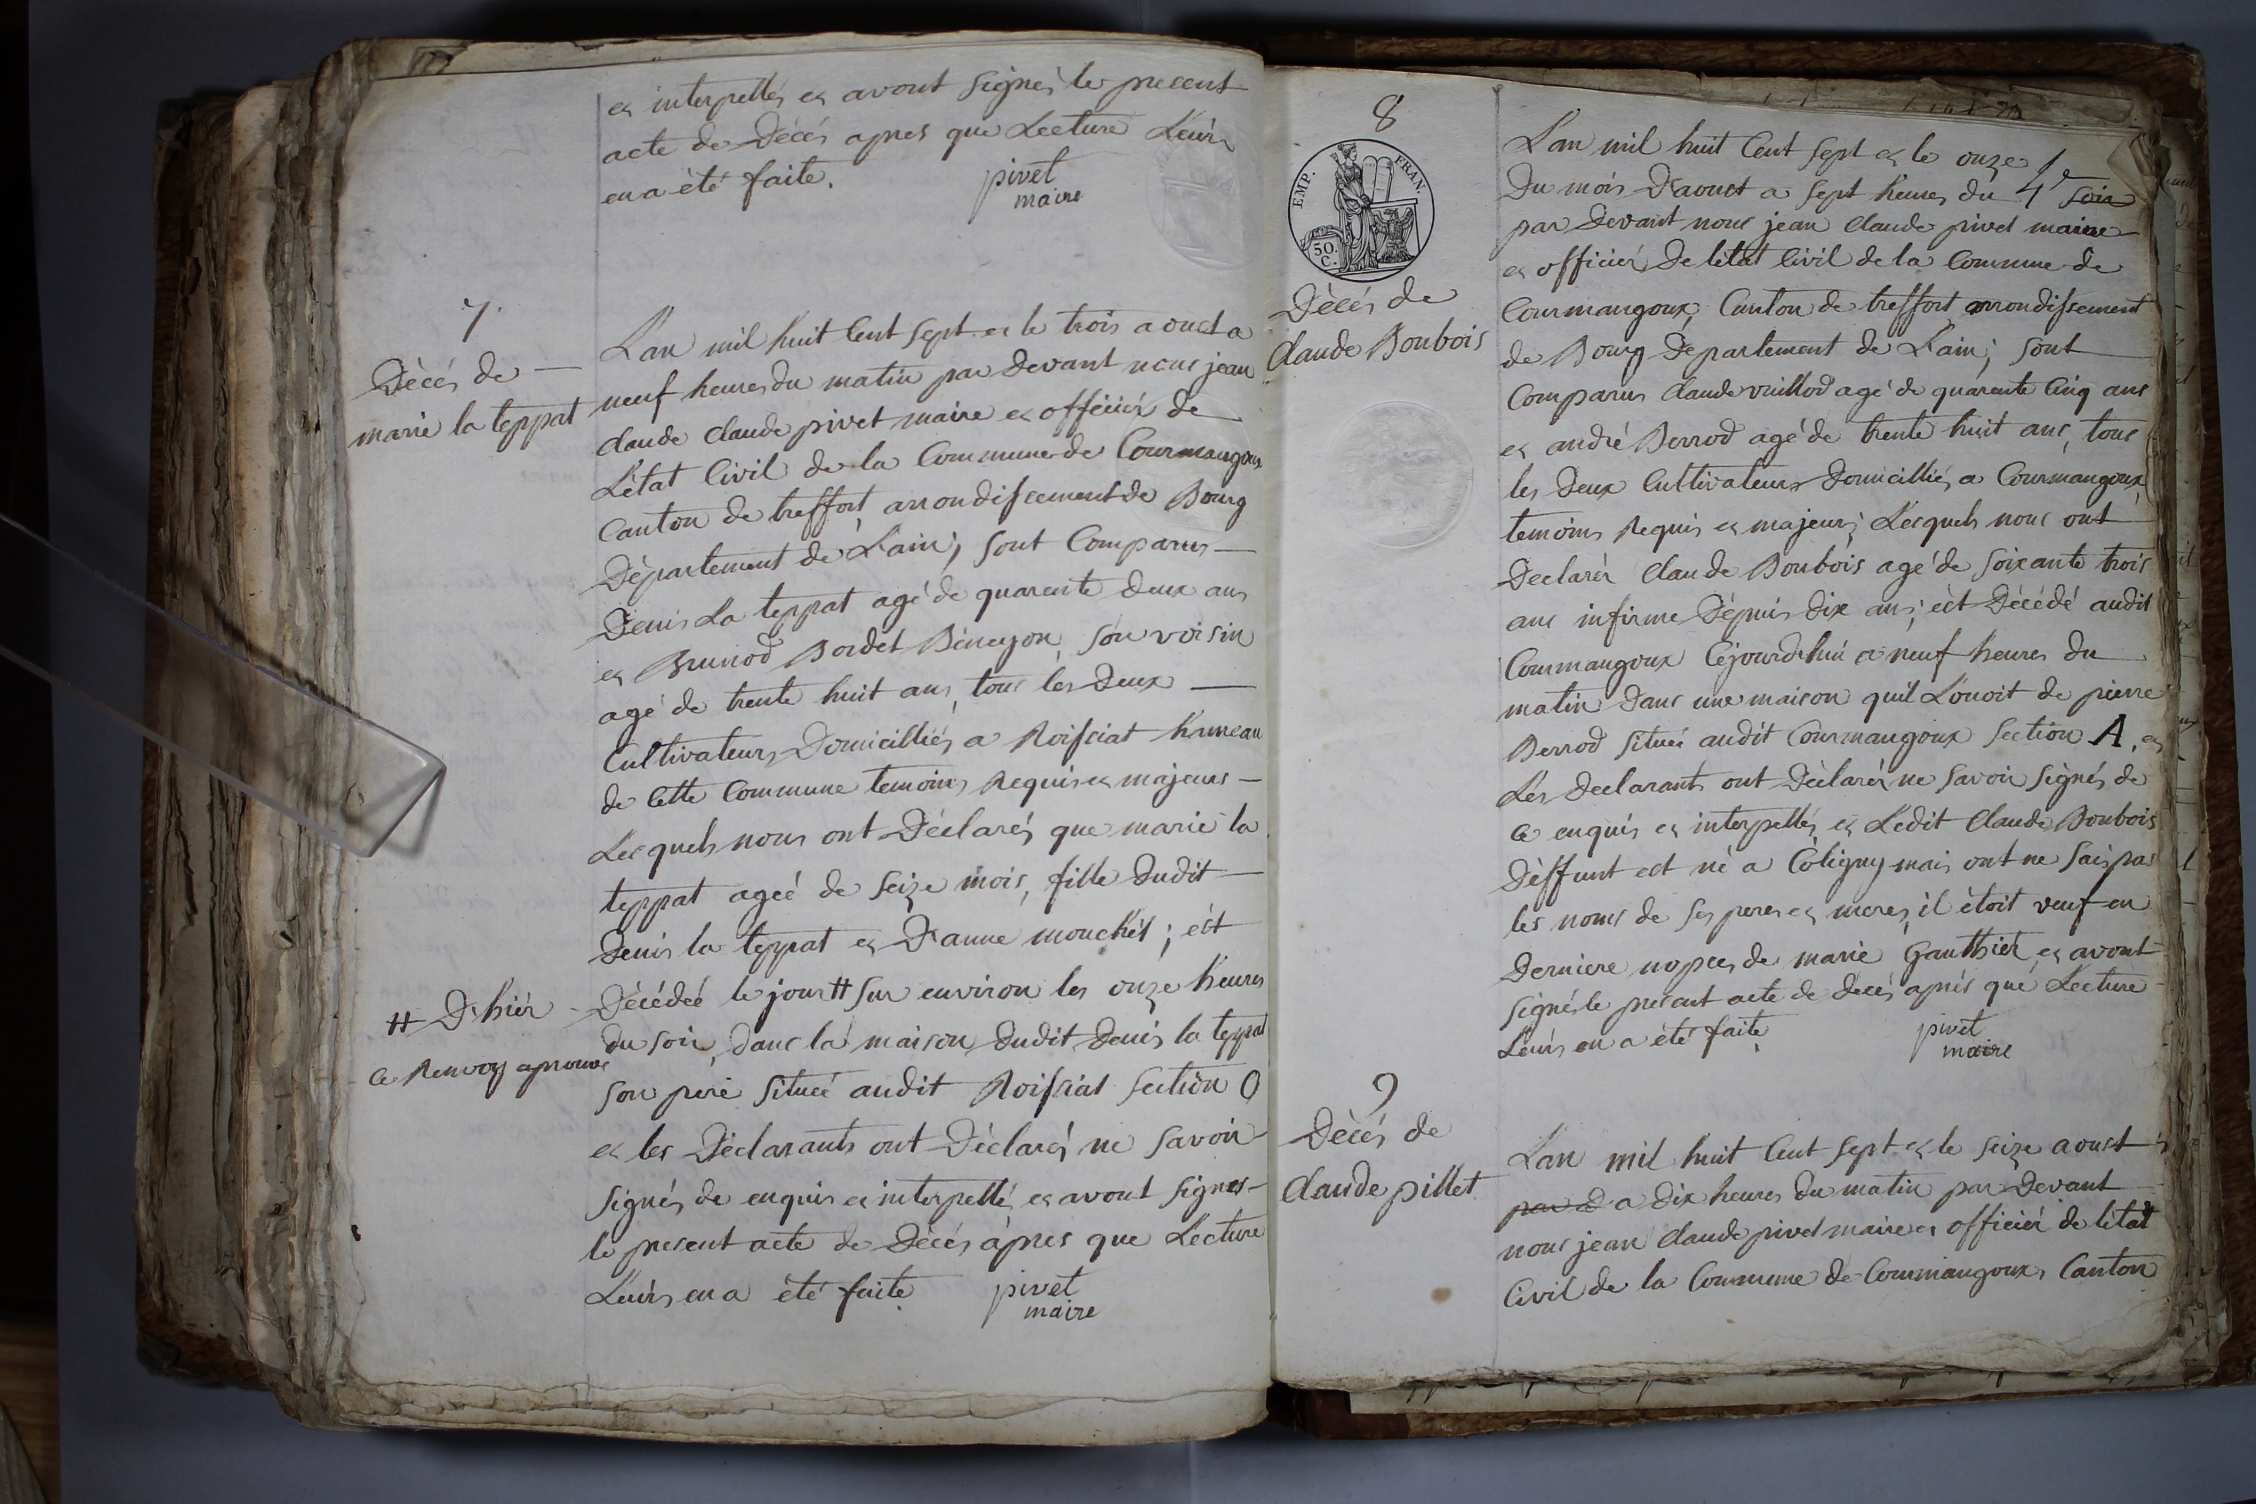 et interpellés et avont signés le present
acte de Décés apres que Lecture Leurs
en a été faite.
pivet
maire
7.
Décés de
marie la teppat
L'an mil huit Cent sept et le trois aoust a
neuf heures du matin par devant nous jean
claude claude pivet maire et officiér de
L'état Civil de la Commune de Courmangoux
Canton de treffort arrondissement de Bourg
Département de L'ain; sont Comparus
Denis La teppat agé de quarente deux ans
et Brunod Bordet Béneyon, son voisin
agé de trente huit ans, tous les deux
Cultivateurs Domicilliés a Roissiat hameau
de Cette Commune temoins Requis et majeurs
Lesquels nous ont Déclarés que marie la
teppat ageé de seize mois, fille dudit
Denis la teppat et D'anne mouchét; ést
Décédeé le jour # sur environ les onze heures
# D'hiér
Ce Renvoy aprouvé
du soir, dans la maison dudit Denis la teppat
son pere située audit Roissiat section O
et les Déclarants ont Déclarés ne savoir
signés de enquis et interpellé et avont signes
le present acte de Décés àpres que Lecture
Leurs en a été faite
pivet
maire
8
EMP. FRAN.
50. C.
Décés de
Claude Boubois
L'an mil huit Cent sept et le onze
Du mois D'aoust a sept heures du soir
par Devant nous jean claude pivet maire
et officiér De létat Civil de la Commune de
Courmangoux, Canton de treffort arrondissement
de Bourg Departement de L'ain; sont
Comparus claude vuillod agé de quarente Cinq ans
et andré Berrod agé de trente huit ans, tous
les Deux Cultivateurs Domicilliés a Courmangoux,
temoins Requis et majeurs; Lesquels nous ont
Declarér Claude Boubois agé de soixante trois
ans infirme Dépuis dix ans; ést Décédé audit
Courmangoux Céjourd'hui a neuf heures du
matin Dans une maison quil Louoit de pierre
Berrod située audit Courmangoux section A, et
Les Declarants ont Déclarér ne savoir signés de
Ce enquis et interpellés et Ledit Claude Boubois
Déffunt est né a Coligny mais ont ne sais pas
les noms de ses peres et meres, il étoit veuf en
Derniere nopces de marie Gauthiér et avont
signés le present acte de décés aprés que Lecture
Leurs en a été faite
pivet
maire
9
Décés de
Claude pillet
L'an mil huit Cent sept et le seize aoust
par d a Dix heures du matin par Devant
nous jean claude pivet maire et officiér de létat
Civil de la Commune de Courmangoux Canton